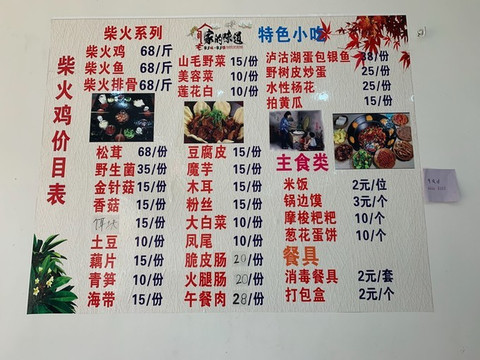 柴火鸡价目表
柴火系列
柴火鸡 68/斤
柴火鱼 68/斤
柴火排骨 68/斤
家的味道
山毛野菜 15/份
美容菜 10/份
莲花白 10/份
特色小吃
泸沽湖蛋包银鱼 38/份
野树皮炒蛋 25/份
水性杨花 25/份
拍黄瓜 15/份
松茸 68/份
野生菌 35/份
金针菇 15/份
香菇 15/份
15/份
土豆 10/份
藕片 15/份
青笋 10/份
海带 15/份
豆腐皮 15/份
魔芋 15/份
木耳 15/份
粉丝 15/份
大白菜 10/份
凤尾 10/份
脆皮肠 20/份
火腿肠 20/份
午餐肉 28/份
主食类
米饭 2元/位
锅边馍 3元/个
摩梭粑粑 10/个
葱花蛋饼 10/个
餐具
消毒餐具 2元/套
打包盒 2元/个